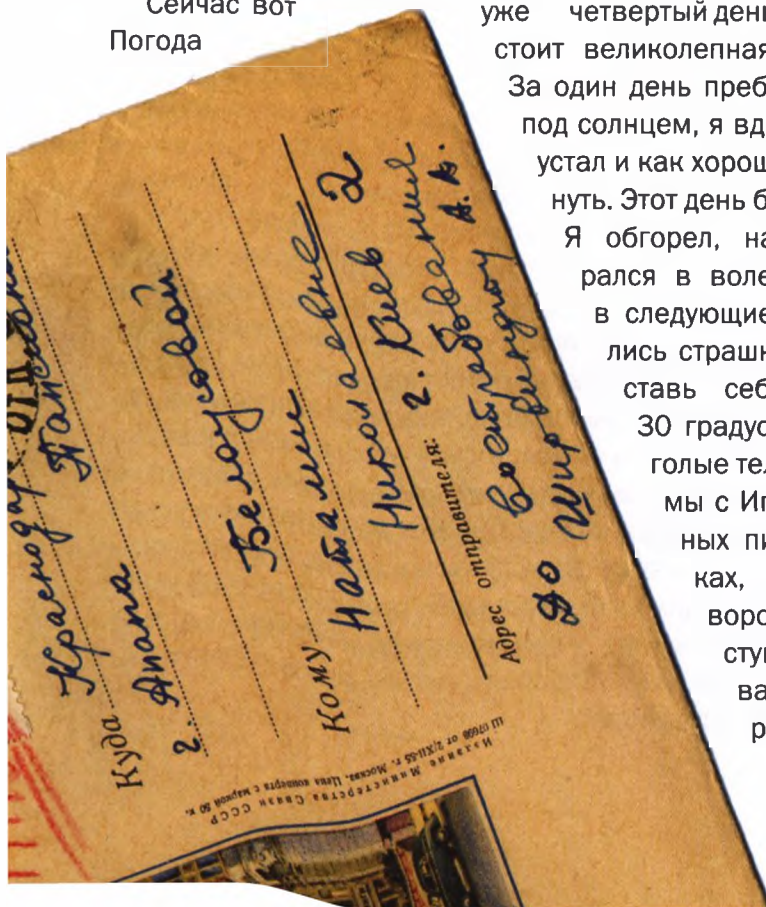 Сейчас вот
Погода
уже четвертый день
стоит великолепная
За один день преб
под солнцем, я вд
устал и как хорош
нуть. Этот день б
Я обгорел, на
рался в воле
в следующие
лись страшн
ставь себ
30 градус
голые тел
мы с Иг
ных пи
ках,
воро
сту
ва
р
Куда Краснодар
г. Анапа
Белоусовой
Кому Наталии
Николаевне
Адрес отправителя: г. Киев 2
до востребования
Шировиндту А. А.
Издание Министерства Связи СССР
Ш 07698 от 2/XII-55 г. Москва. Цена конверта с маркой 50 к.